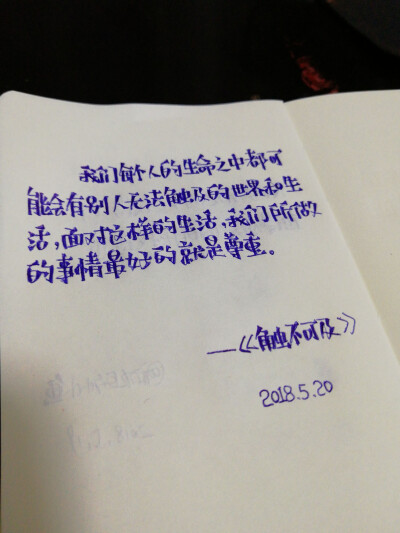 我们每个人的生命之中都可
能会有别人无法触及的世界和生
活，面对这样的生活，我们所做
的事情最好的就是尊重。
—《触不可及》
2018.5.20